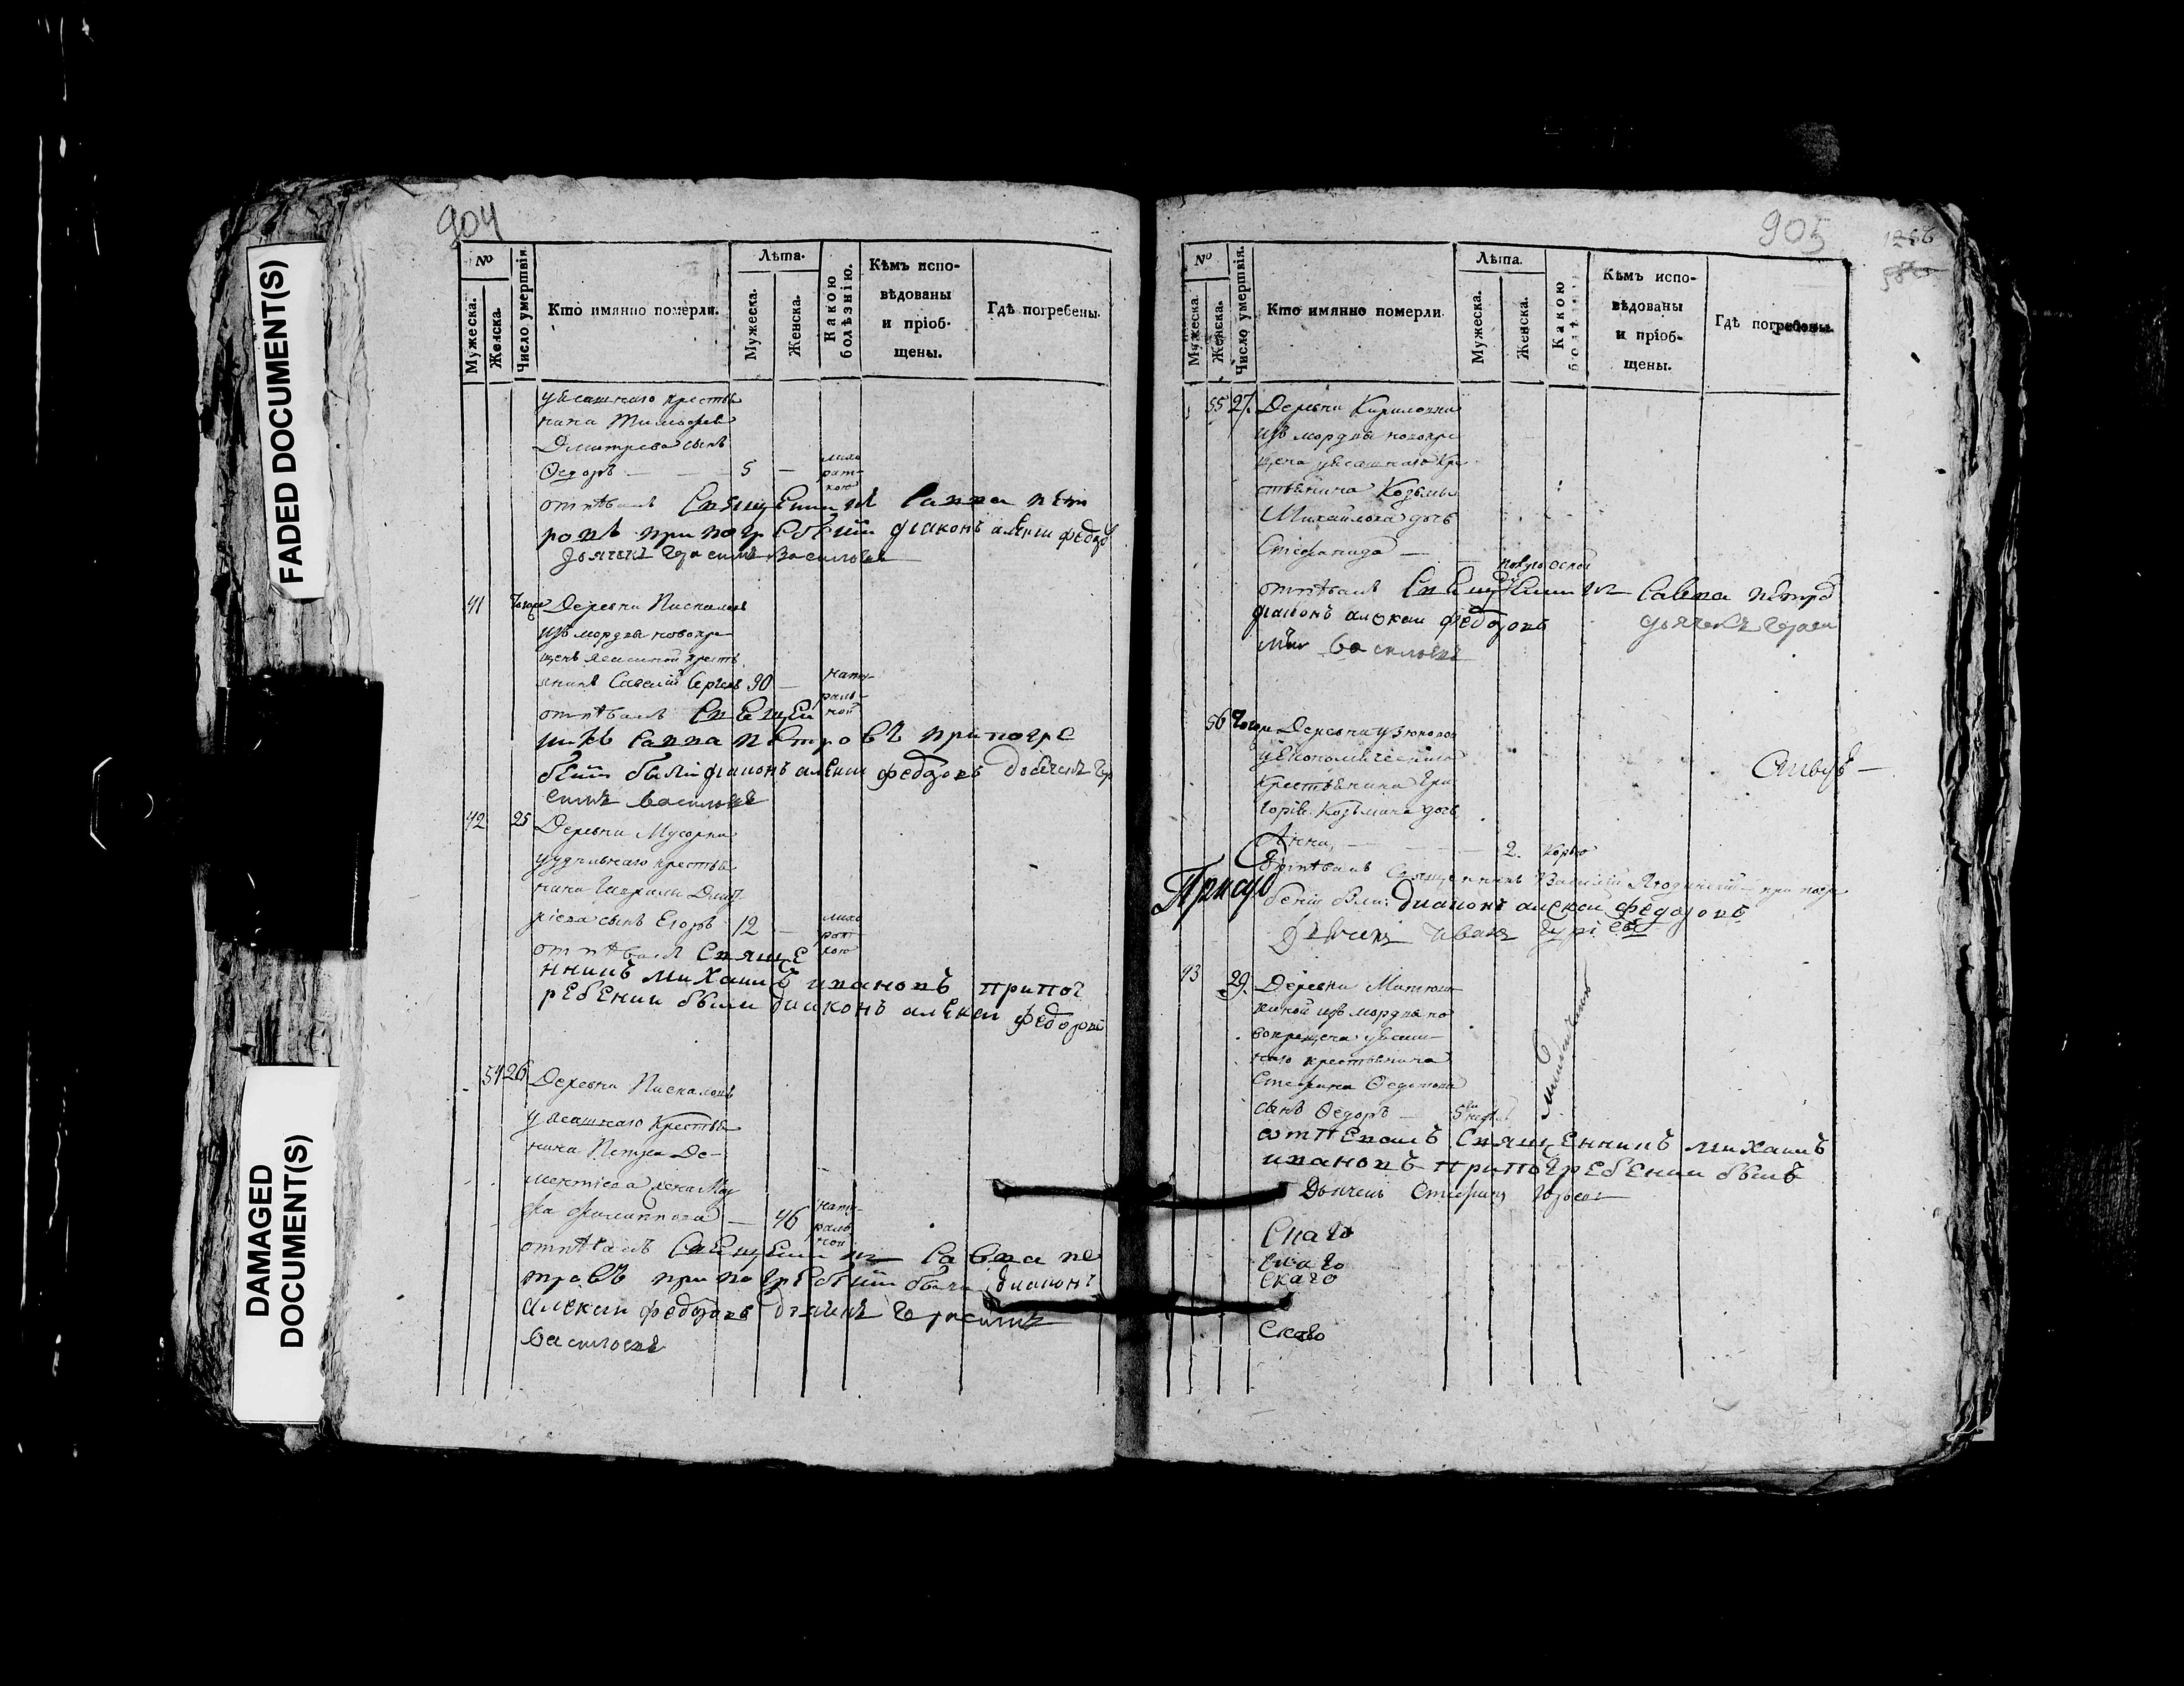 FADED DOCUMENT(S)
DAMAGED
DOCUMENT(S)
904
№
Мужеска.
Женска.
Число умертвія.
Кто имянно померли.
Лѣта.
Мужеска.
Женска.
Какою
болѣзнію.
Кѣмъ испо-
вѣдованы
и пріоб-
щены.
Гдѣ погребены.
уясашнаго крестья
нина Тимофея
Дмитрева сынъ
Ѳедоръ — — — 5 — лихо
рат-
кою
отпѣвалъ Священникъ Савва Пет
ровъ при погребеніи діаконъ алекси федоро
дьячекъ Герасимъ Васильевъ
41 Деревни Пискаловъ
изъ мордвы новокре
щенъ ясашной кресть
янинъ Савелій Сергѣевъ 90 — нату-
раль-
ной
отпѣвалъ Священ
никъ Савва Петровъ при погре
беніи были діаконъ алекси федоровъ дьячекъ Гера
симъ Васильевъ
42 25 Деревни Мусорки
удѣльнаго крестья
нина Гаврилы Дмит
ріева сынъ Егоръ 12 — лихо
рат
кою
отпѣвалъ Свяще
нникъ михаилъ ивановъ при пог
ребении были диаконъ алекси федоровъ
54 26 Деревни Пискаловъ
уясашнаго Крестья
нина Петра Де-
ментіева жена Мар
фа Филиппова — 46 нату-
раль
ной
отпѣвалъ Священникъ Савва Пе
тровъ при погребеніи были диаконъ
алекси федоровъ дьячекъ Герасимъ
Васильевъ
905
1286
№
Мужеска.
Женска.
Число умертвія.
Кто имянно померли.
Лѣта.
Мужеска.
Женска.
Какою
болѣзнію
Кѣмъ испо-
вѣдованы
и пріоб-
щены.
Гдѣ погребены.
55 27. Деревни Кириловки
изъ мордвы новокре
щена уясашнаго Кре
стьянина Козьмы
Михайлова дочь
Стефанида — оспой
отпѣвалъ Священникъ Савва Петро
діаконъ алекси федоровъ дьячекъ Гераси
мъ Васильевъ
56 Деревни Узюковой
уекономическаго
Крестьянина Гри
горія Козьмина дочь
Анна, — — 2. Корью
отпѣвалъ Священникъ Василій Ягодинскій при погр
беніи были диаконъ алекси федоровъ
Дьячекъ Иванъ Гурісвъ
43 29. Деревни Матюш
киной изъ мордвы но
вокрещена уясаш-
наго крестьянина
Стефана Ѳедотова
сынъ Ѳедоръ — 5 нед. Младенчиком
отпевалъ Священникъ михаилъ
ивановъ при погребении былъ
Дьячекъ Стефанъ
Скаго
Скаго
Скаго
Скаго